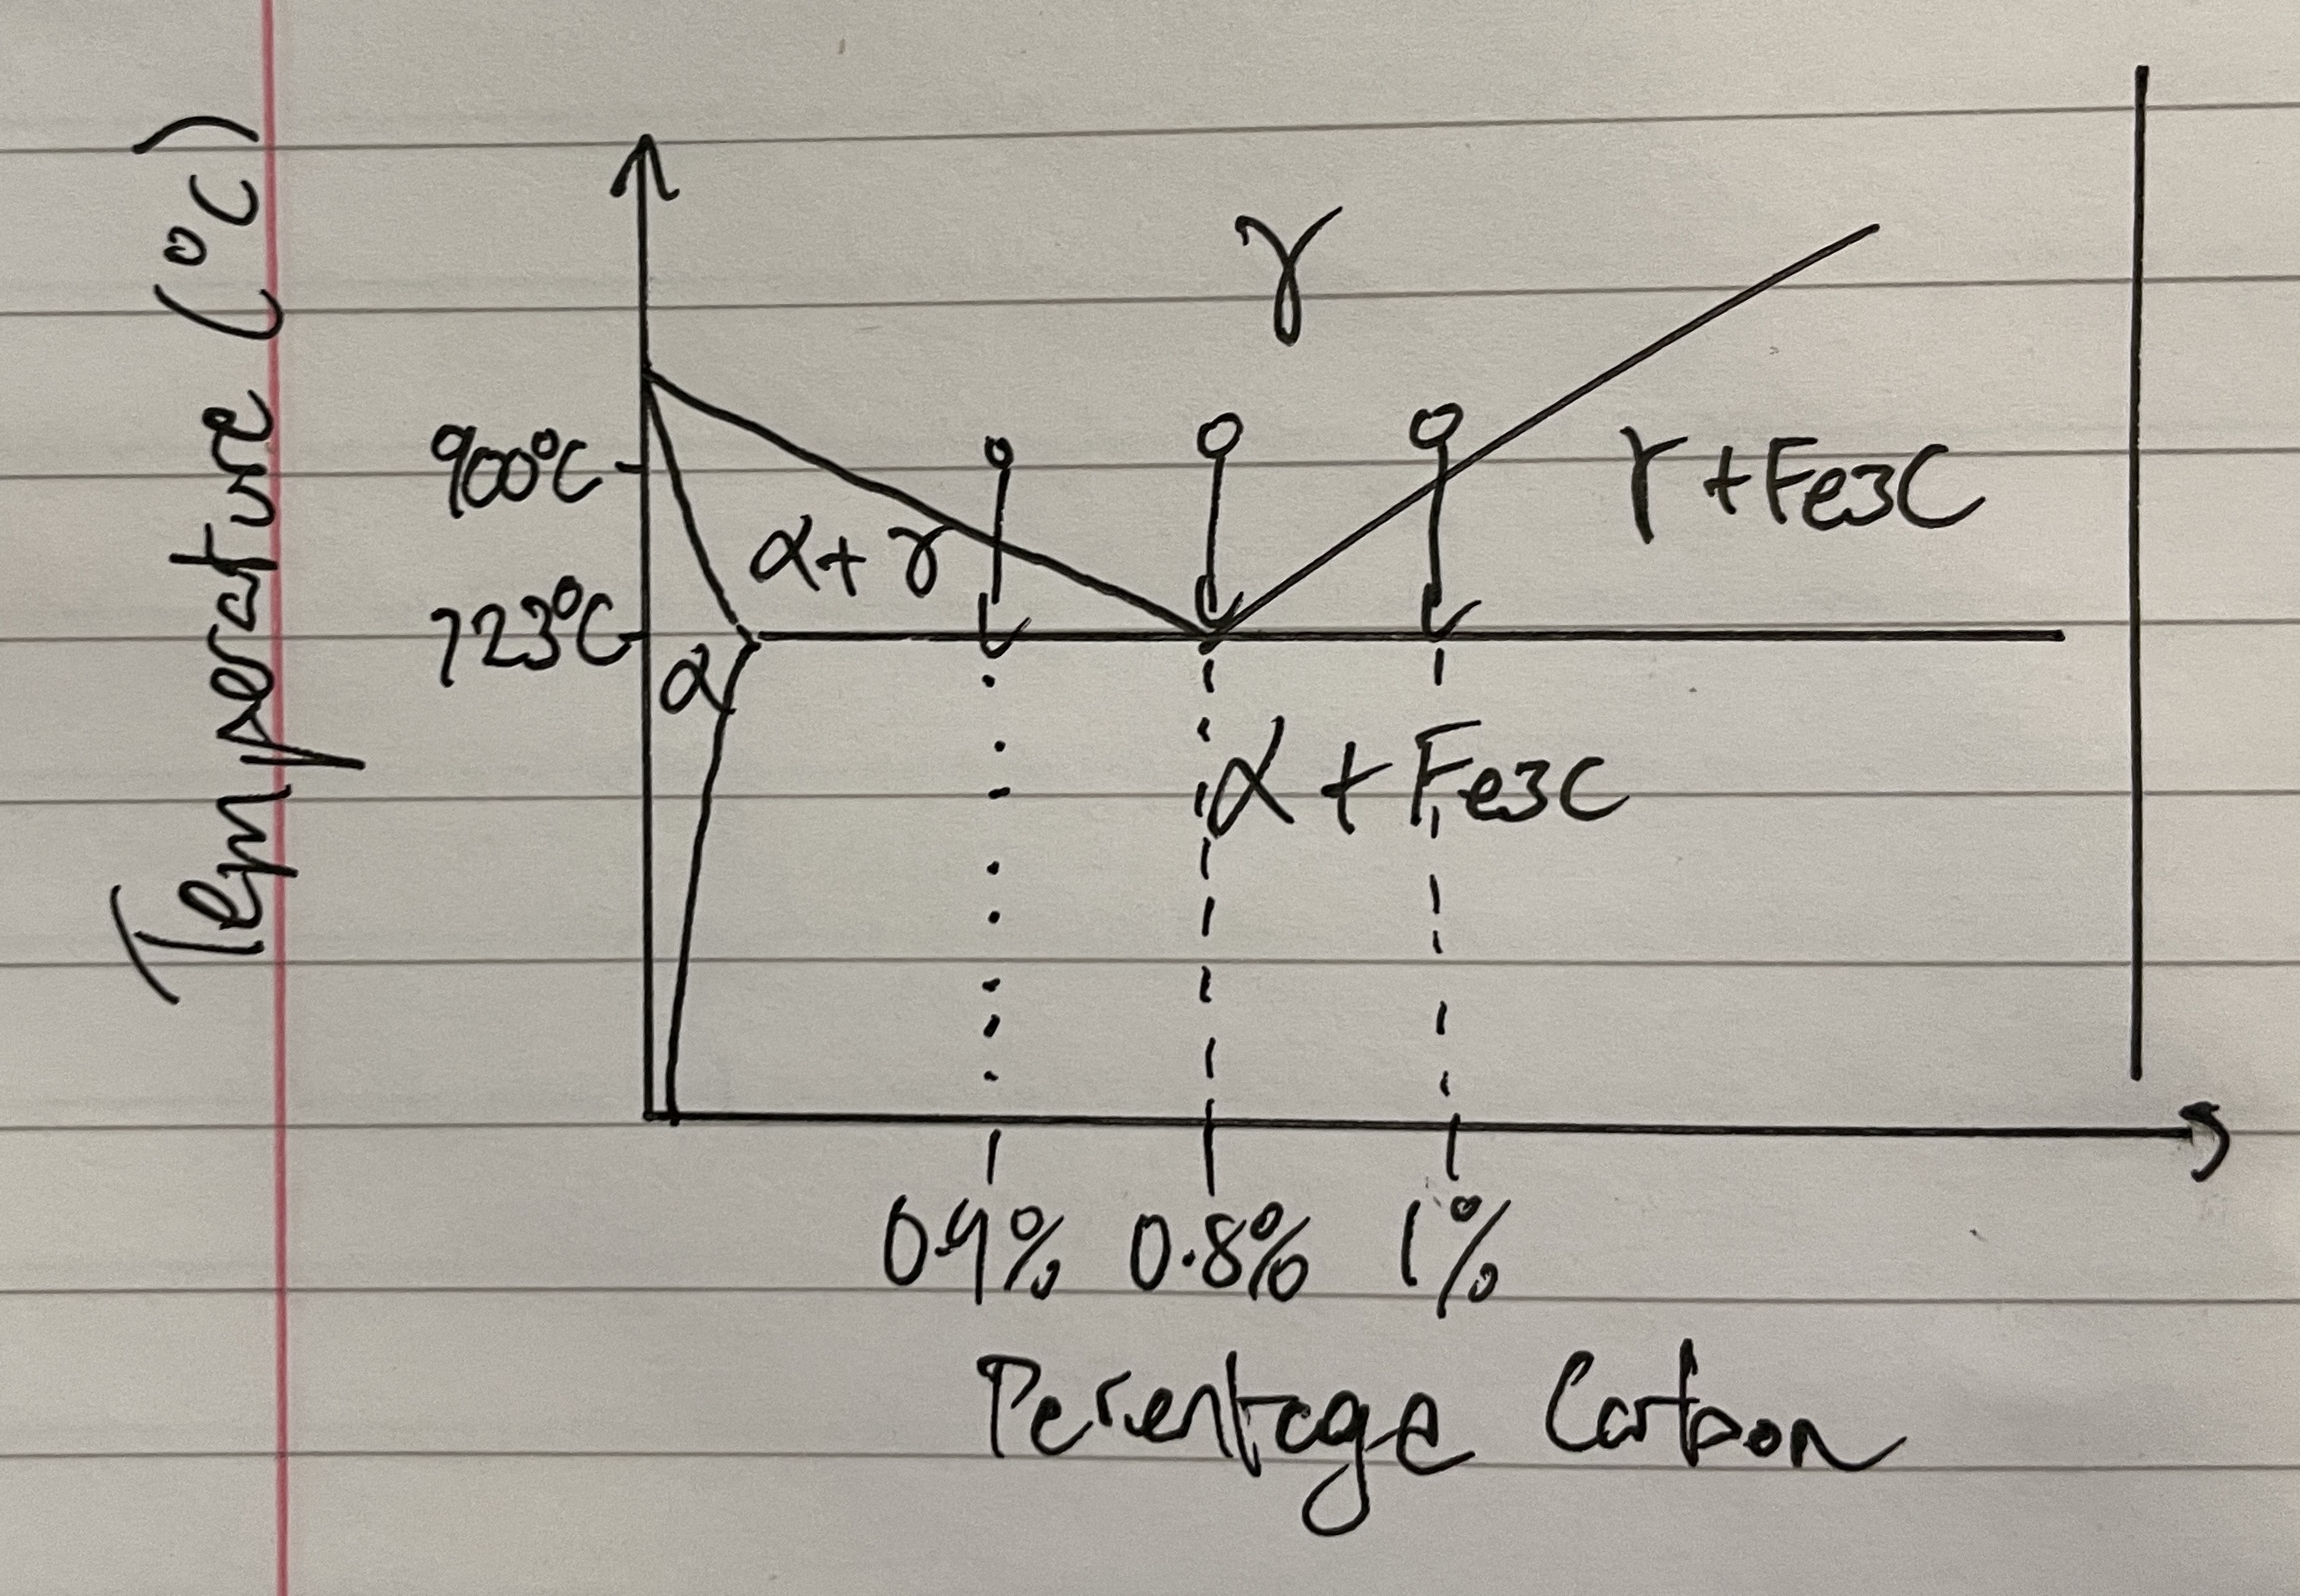 Temperature (°C)
γ
900°C
γ + Fe3C
α + γ
723°C
α
α + Fe3C
0.4% 0.8% 1%
Percentage Carbon